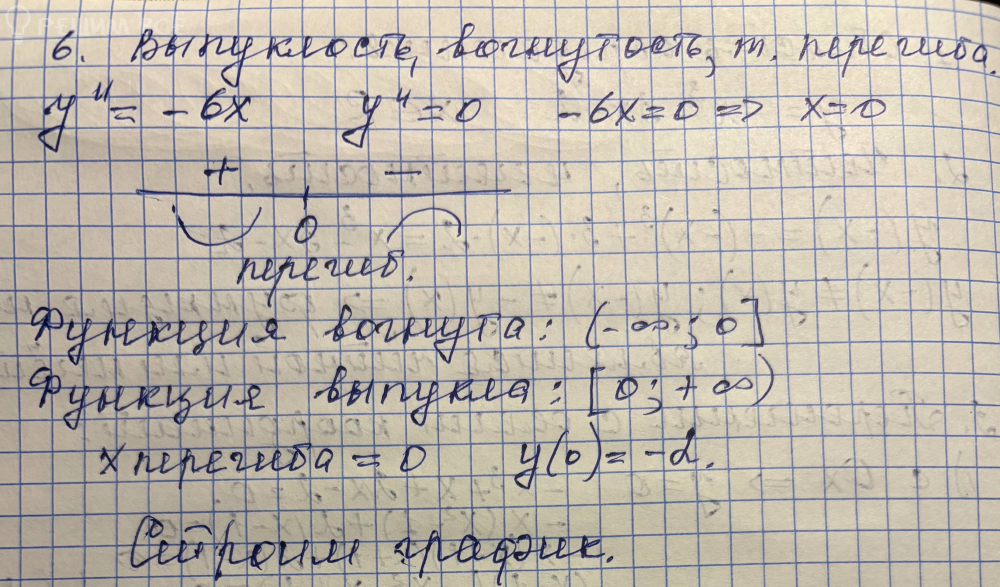 РЕШИМ ВСЁ
6. Выпуклость, вогнутость, т. перегиба.
y'' = -6x y'' = 0 -6x = 0 => x = 0
+ -
0
перегиб.
Функция вогнута: (-∞; 0]
Функция выпукла: [0; +∞)
x перегиба = 0 y(0) = -2.
Строим график.